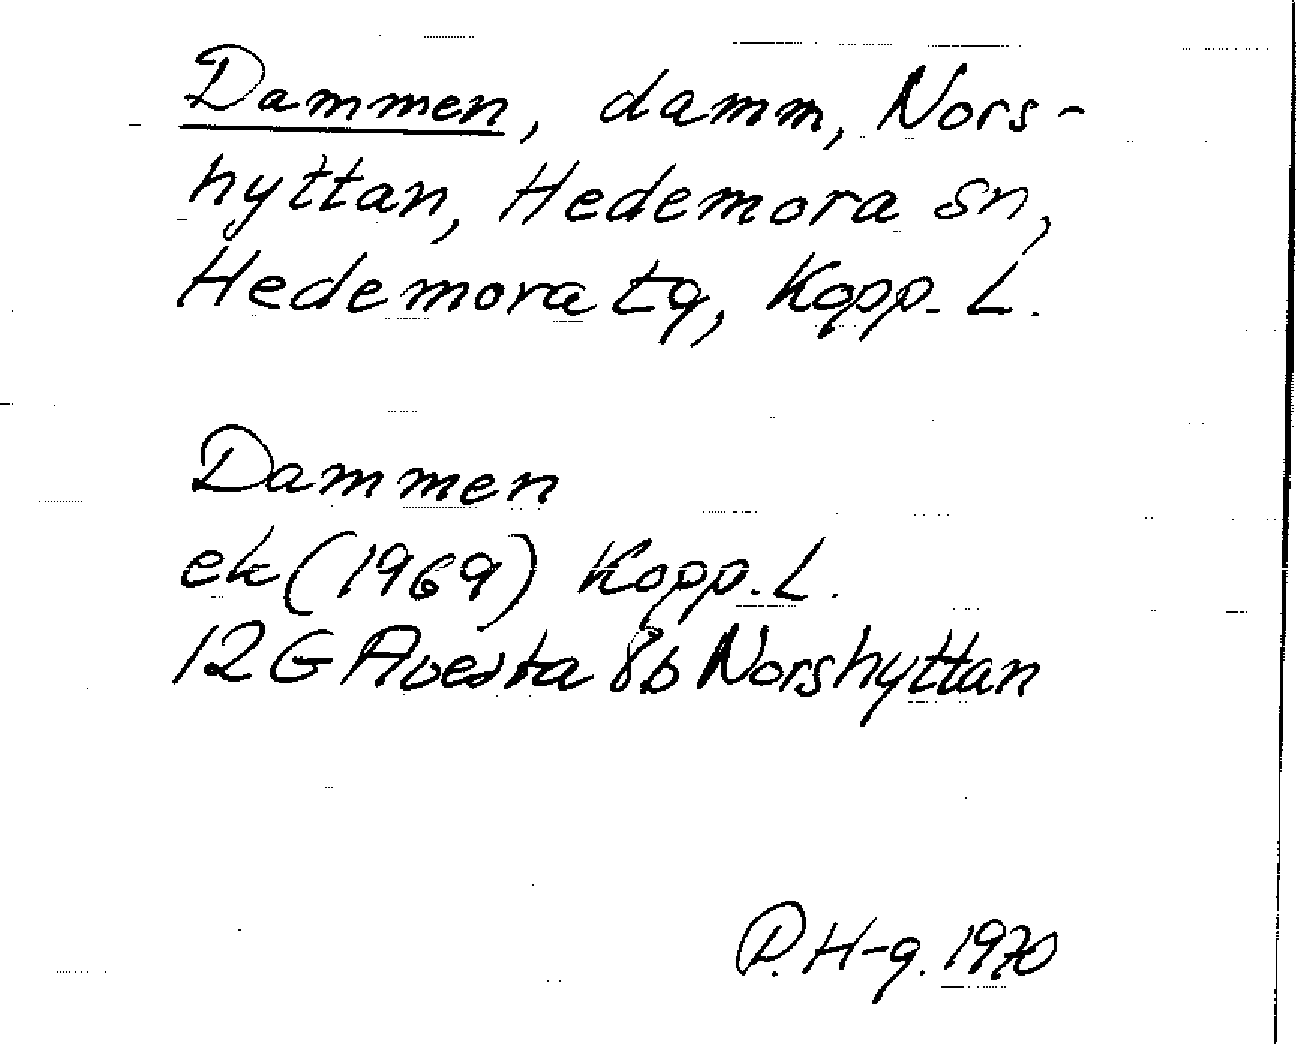 Dammen, damm, Nors-
hyttan, Hedemora sn,
Hedemora tg, Kopp. L.
Dammen
ek (1969) Kopp. L.
12 G Avesta 8b Norshyttan
P. H-g. 1970